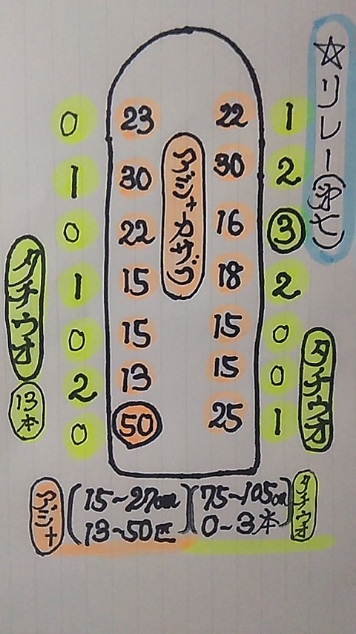 ☆リレー
0 23 22 1
1 30 30 2
0 22 16 ③
1 15 18 2
0 15 15 0
2 13 15 0
0 50 25 1
アジ+カサゴ
タチウオ
13本
タチウオ
アジ+
(15~27cm
13~50匹)
(75~105cm
0~3本)
タチウオ